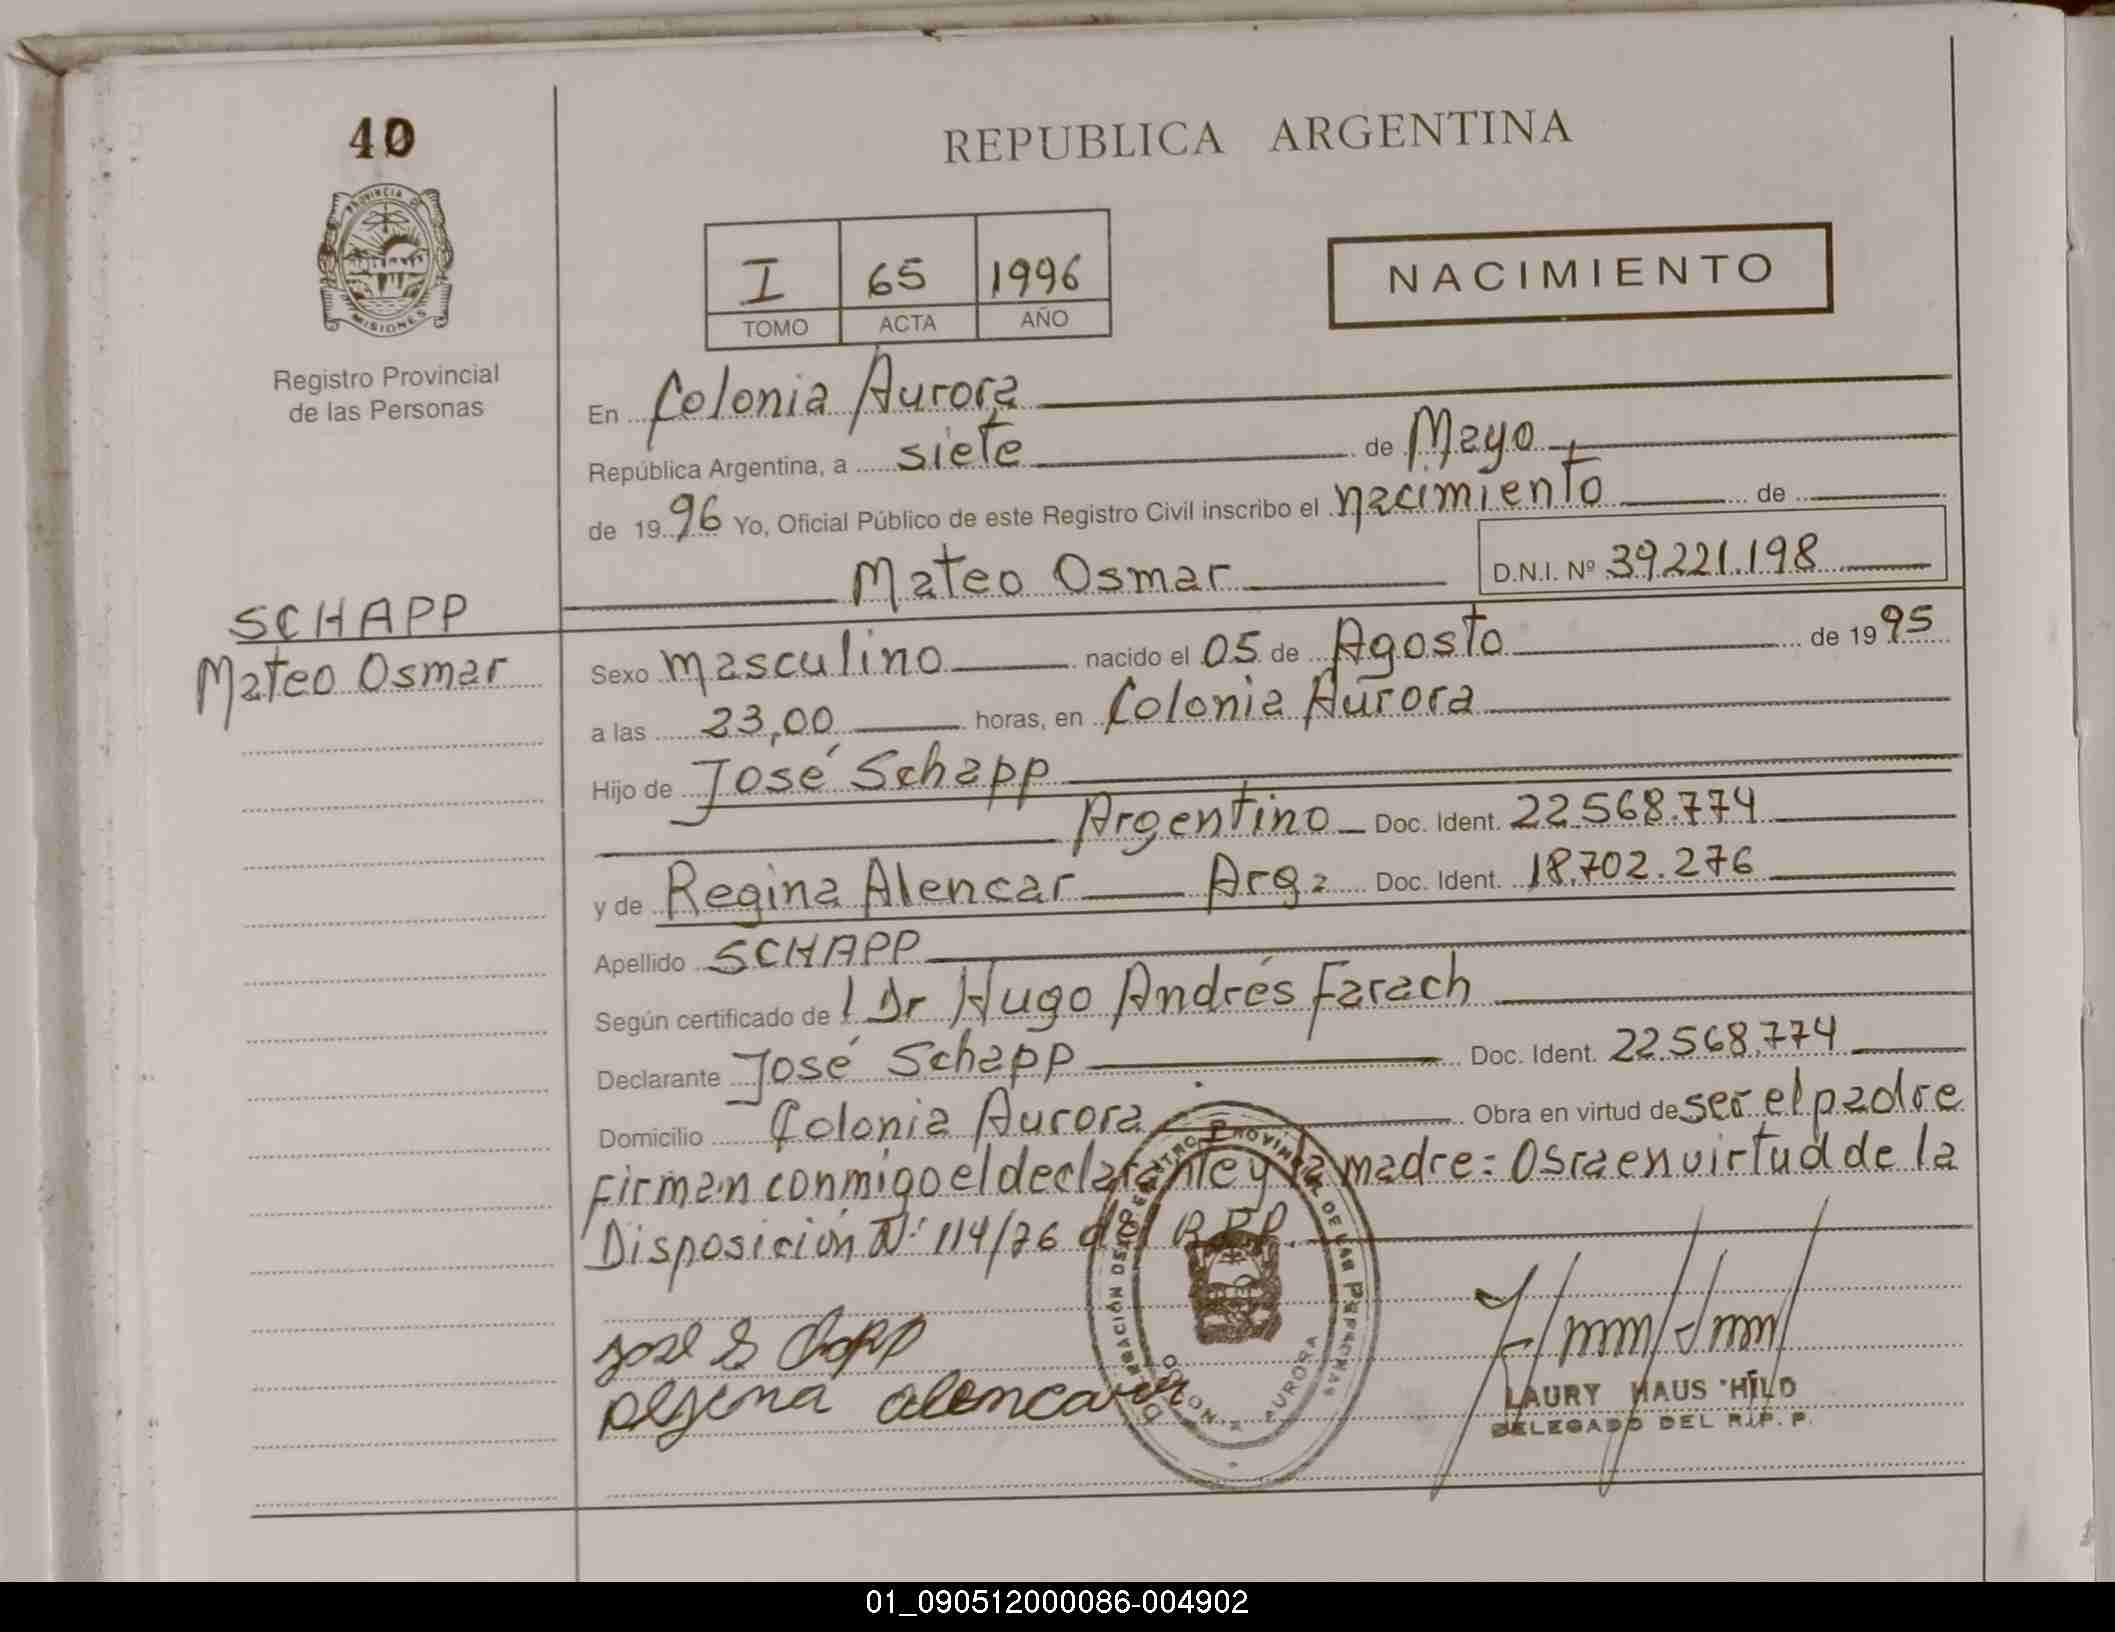 40
PROVINCIA DE
MISIONES
Registro Provincial
de las Personas
SCHAPP
Mateo Osmar
REPUBLICA ARGENTINA
I 65 1996
TOMO ACTA AÑO
NACIMIENTO
En Colonia Aurora
República Argentina, a siete de Mayo
de 1996 Yo, Oficial Público de este Registro Civil inscribo el nacimiento de
Mateo Osmar D.N.I. Nº 39.221.198
Sexo masculino nacido el 05 de Agosto de 1995
a las 23,00 horas, en Colonia Aurora
Hijo de José Schapp
Argentino Doc. Ident. 22.568.774
y de Regina Alencar Arg. Doc. Ident. 18.702.276
Apellido SCHAPP
Según certificado de l Dr Hugo Andrés Farach
Declarante José Schapp Doc. Ident. 22.568.774
Domicilio Colonia Aurora Obra en virtud de ser el padre
Firman conmigo el declarante y la madre = Osra en virtud de la
Disposición Nº 114/76 del R.P.P.
José Schapp
Regina alencar
PROVINCIAL DE LAS PERSONAS
AURORA
LAURY HAUS HILD
DELEGADO DEL R.P.P.
01_090512000086-004902